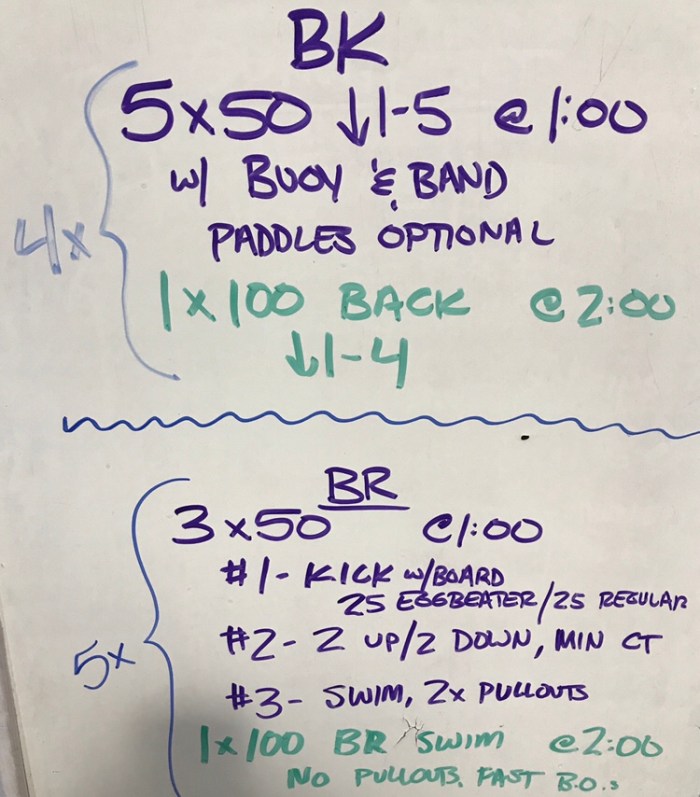 BK
4x
5x50 ↓1-5 @ 1:00
w/ BUOY & BAND
PADDLES OPTIONAL
1x100 BACK @ 2:00
↓1-4
BR
5x
3x50 @ 1:00
#1- KICK w/BOARD
25 EGGBEATER/25 REGULAR
#2- 2 UP/2 DOWN, MIN CT
#3- SWIM, 2x PULLOUTS
1x100 BR SWIM @ 2:00
NO PULLOUTS. FAST B.O.s